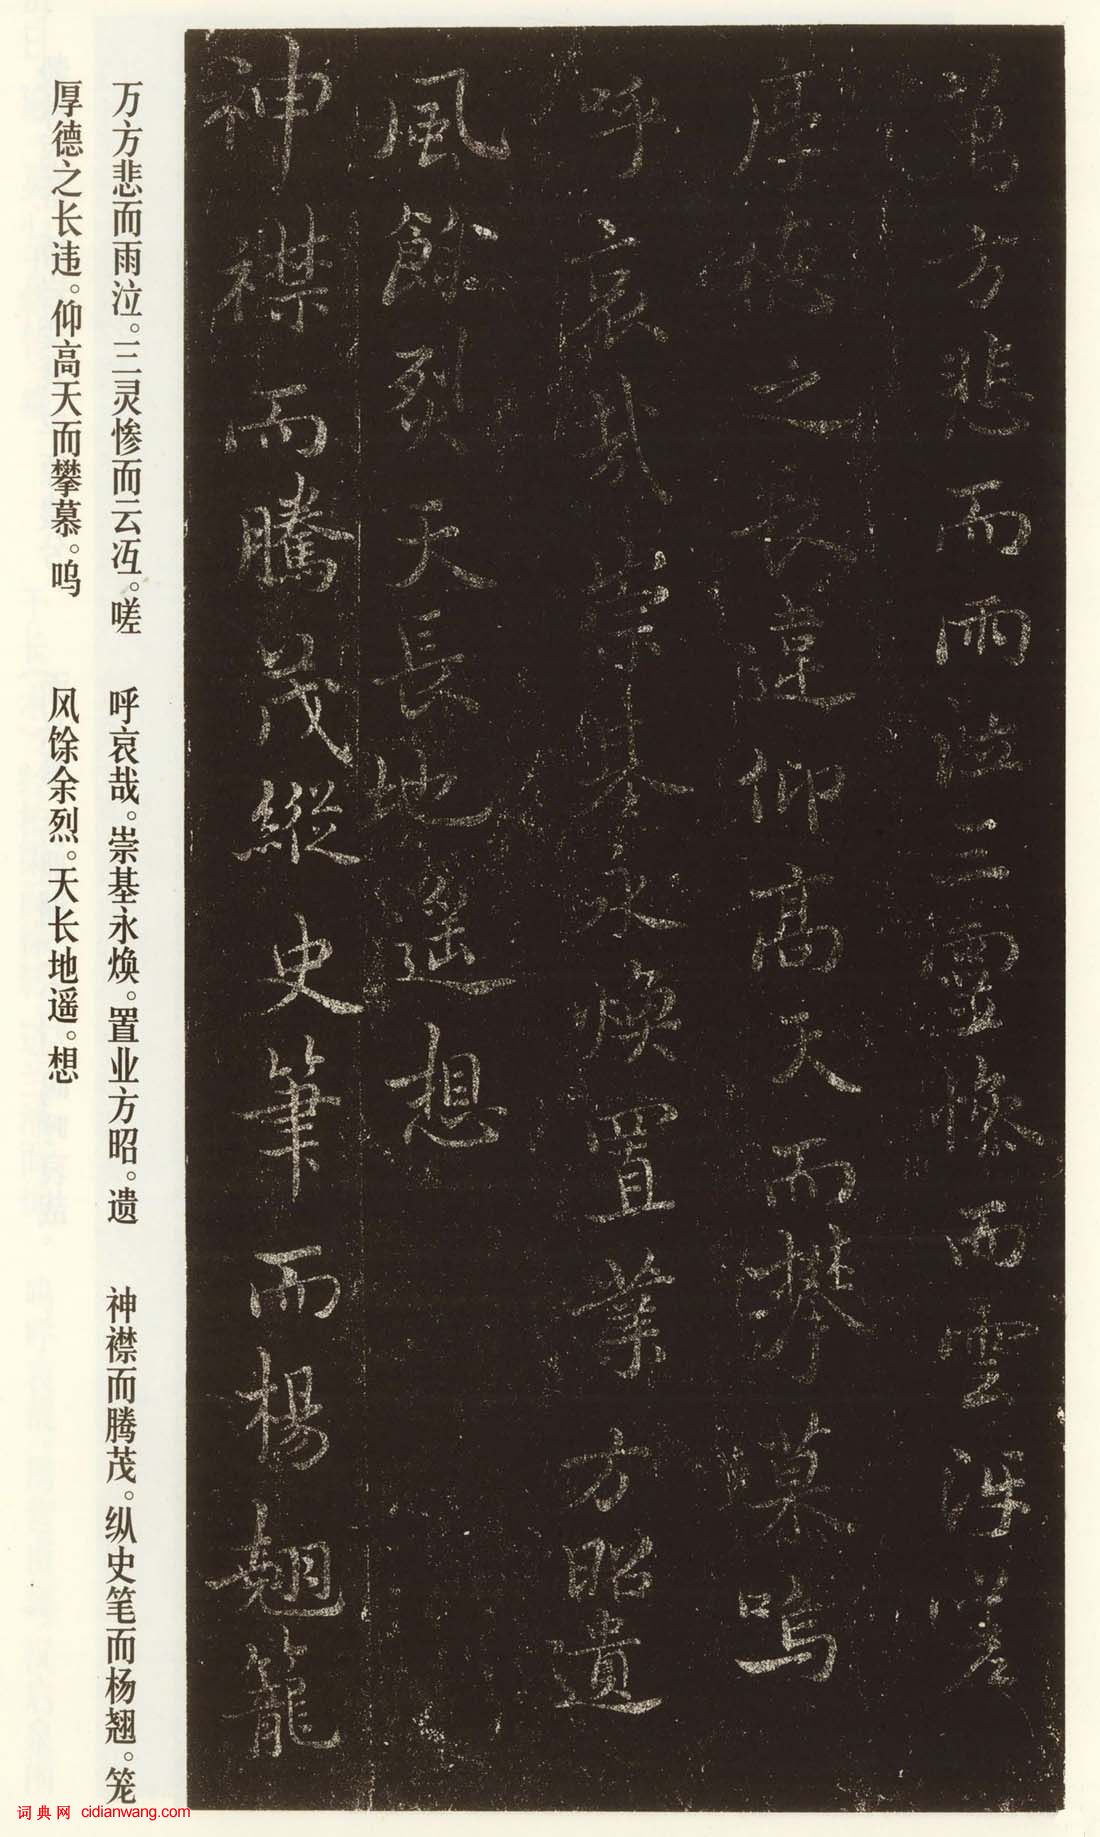 萬方悲而雨泣三靈慘而雲冱嗟
厚德之長違仰高天而攀慕嗚
呼哀哉崇基永煥置業方昭遺
風餘烈天長地遥想
神襟而騰茂縱史筆而楊翹籠
万方悲而雨泣。三灵惨而云冱。嗟
厚德之长违。仰高天而攀慕。呜
呼哀哉。崇基永焕。置业方昭。遗
风馀余烈。天长地遥。想
神襟而腾茂。纵史笔而杨翘。笼
词典网 cidianwang.com